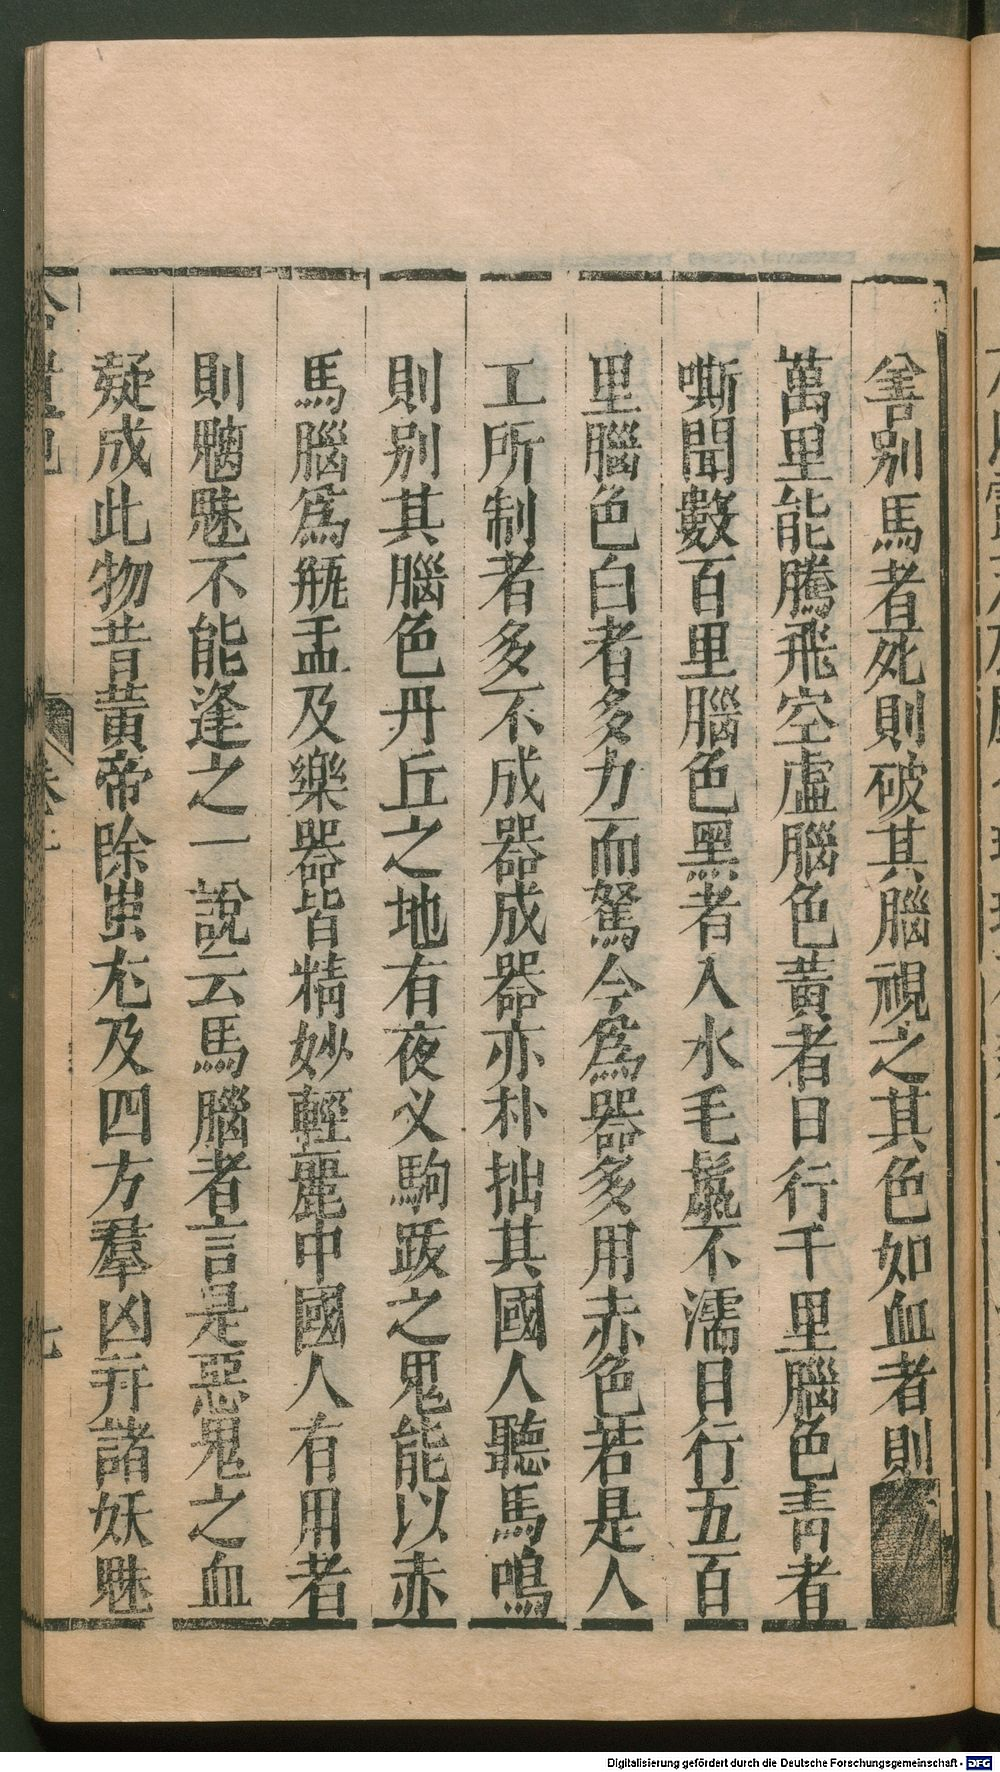 善别馬者死則破其腦視之其色如血者則
萬里能騰飛空虛腦色黃者日行千里腦色青者
嘶聞數百里腦色黑者入水毛鬛不濡日行五百
里腦色白者多力而駑今爲器多用赤色若是人
工所制者多不成器成器亦朴拙其國人聽馬鳴
則别其腦色丹丘之地有夜义駒跋之鬼能以赤
馬腦爲瓶盂及樂器皆精妙輕麗中國人有用者
則魑魅不能逢之一說云馬腦者言是惡鬼之血
凝成此物昔黃帝除蚩尤及四方羣凶并諸妖魅
七
Digitalisierung gefördert durch die Deutsche Forschungsgemeinschaft - DFG